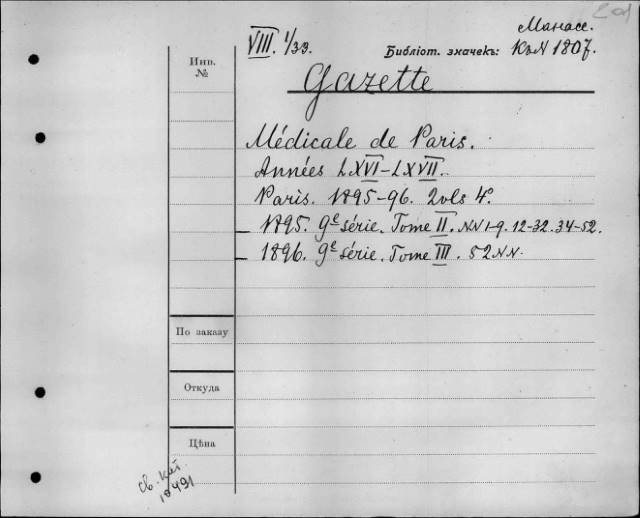 Манасс.
VIII. 1/33. Библіот. значекъ: КъN 1807.
Инв.
№
Gazette
Médicale de Paris.
Années LXVI-LXVII.
Paris. 1895-96. 2vls 4°.
1895. 9e série. Tome II. NN 1-9. 12-32. 34-52.
1896. 9e série. Tome III. 52 NN.
По заказу
Откуда
Цѣна
Св. кат.
18491